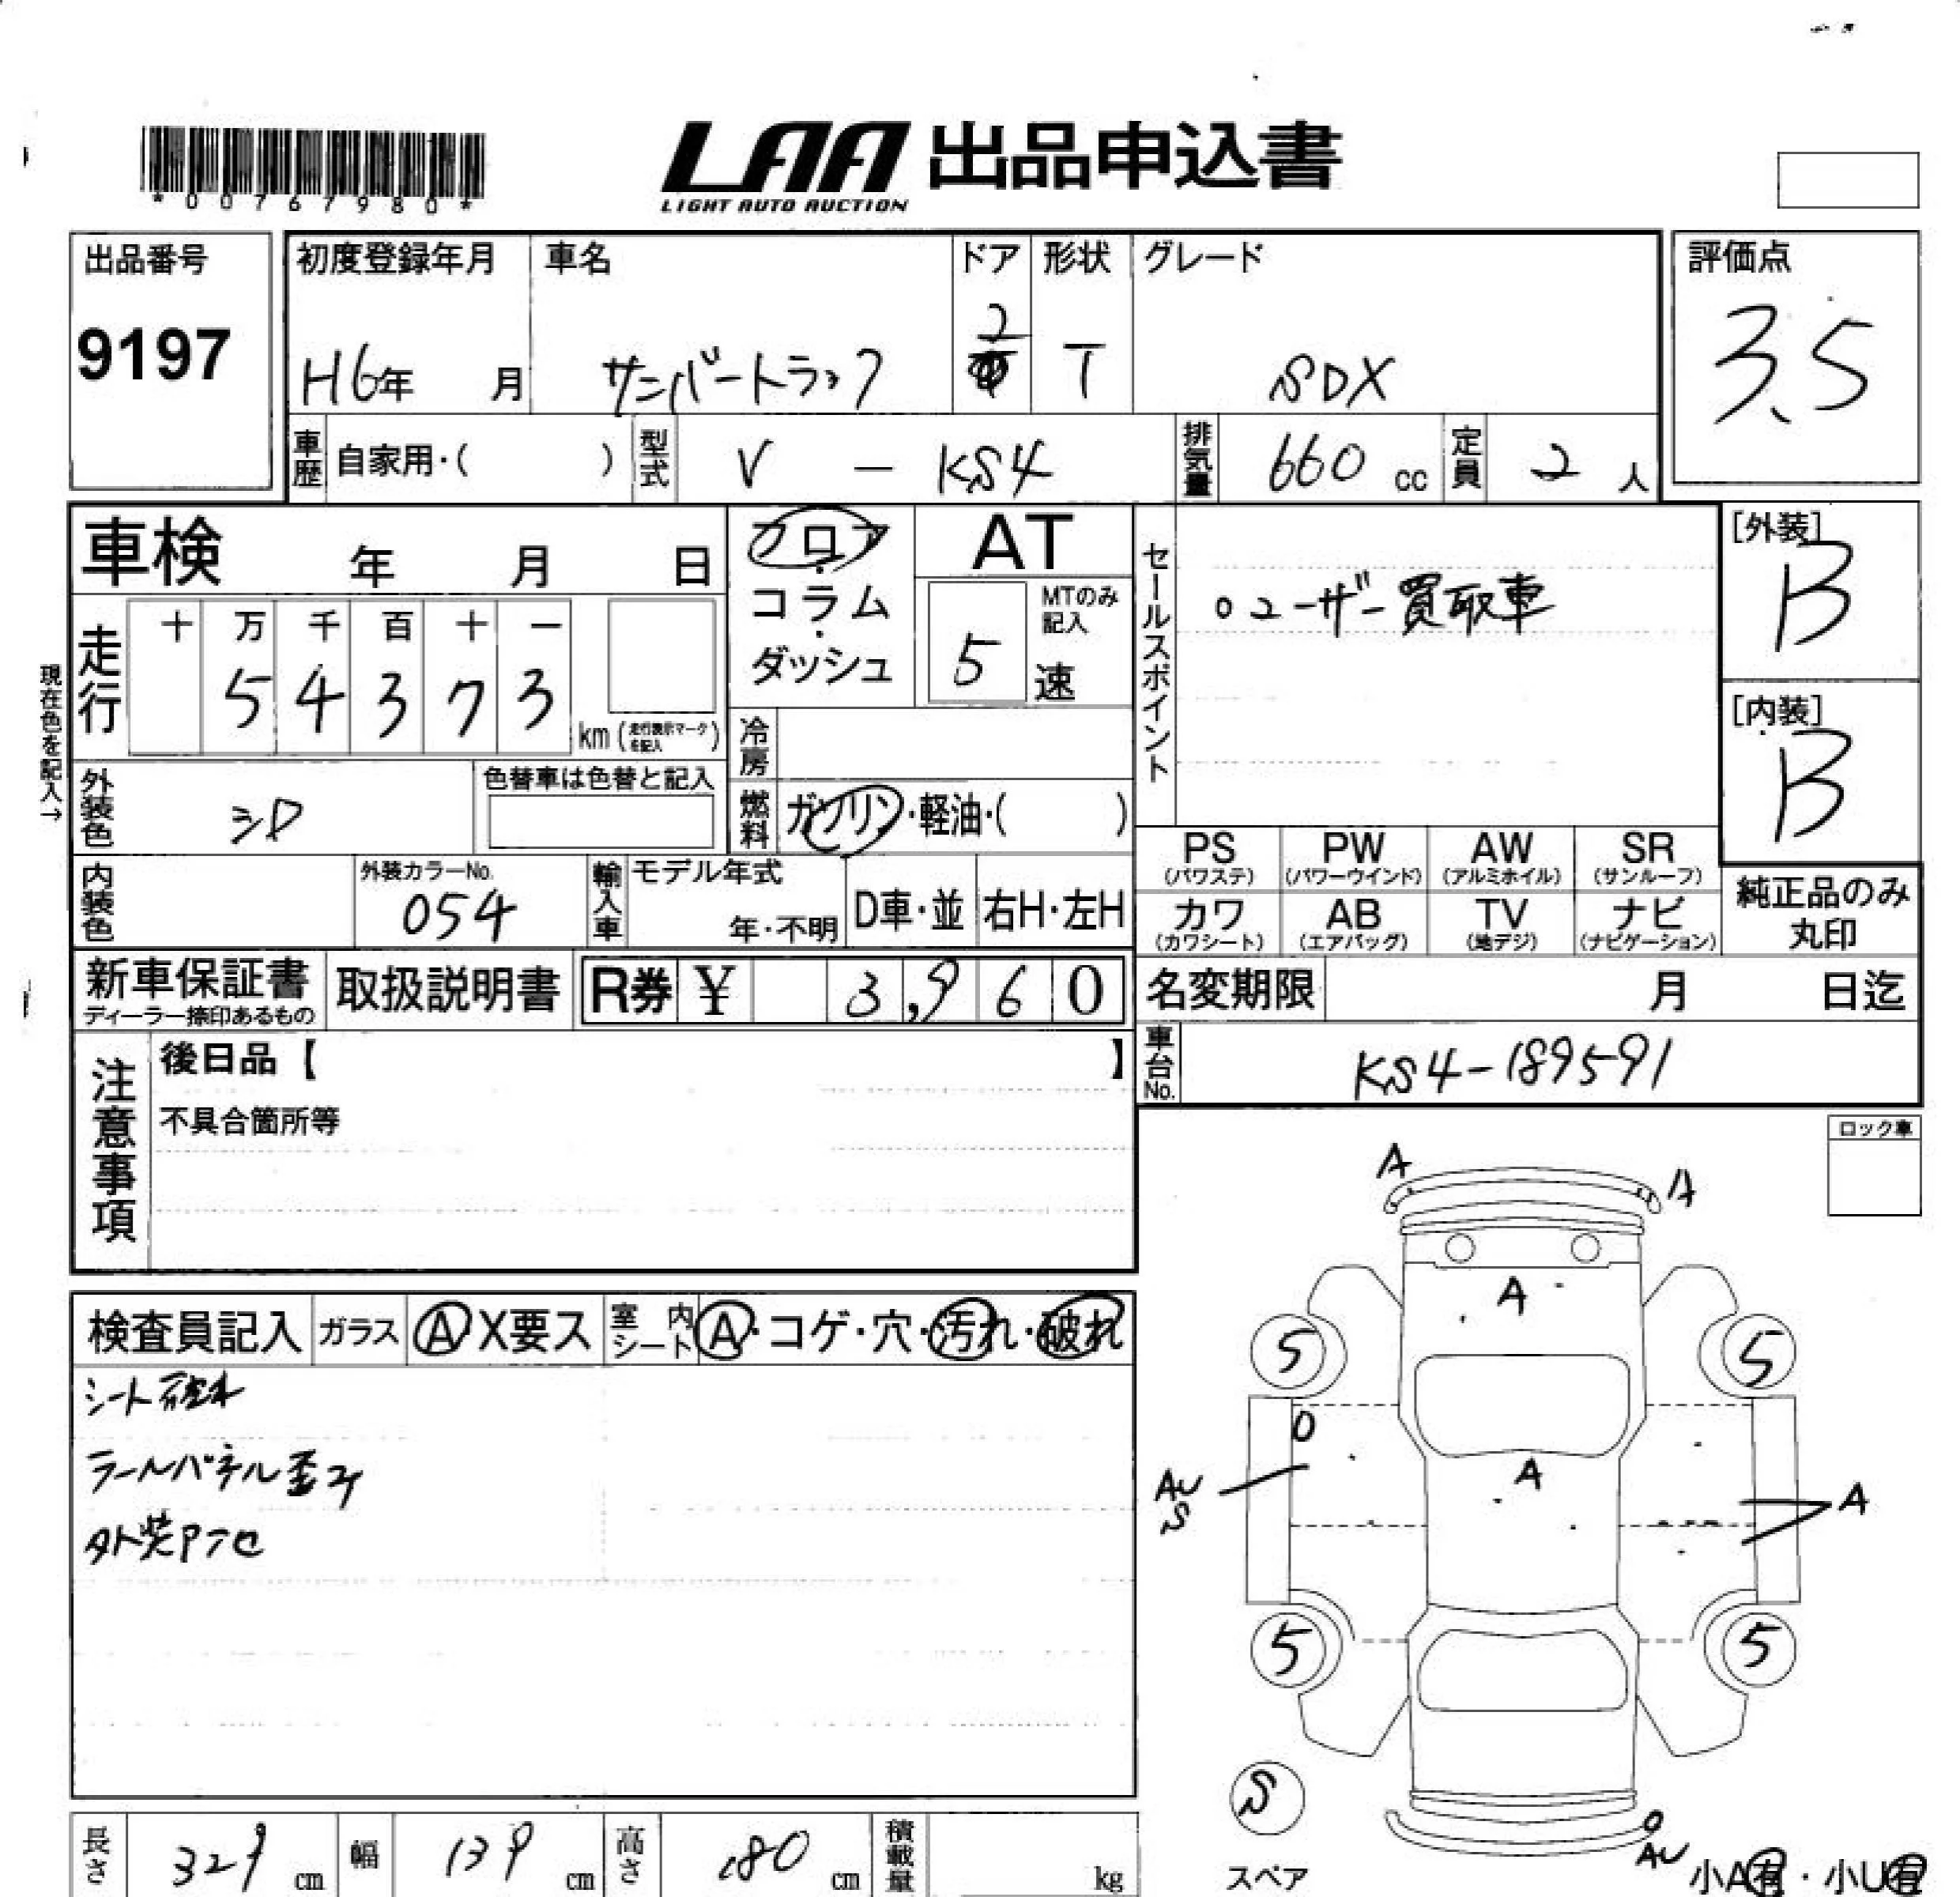 *00767980*
LAA 出品申込書
LIGHT AUTO AUCTION
出品番号
9197
初度登録年月
H6年 月
車名
サンバートラック
ドア
2
形状
T
グレード
SDX
評価点
3.5
車歴 自家用・( )
型式 V - KS4
排気量 660 cc
定員 2 人
車検 年 月 日
フロア・コラム・ダッシュ
AT
MTのみ記入
5 速
セールスポイント
○ユーザー買取車
[外装]
B
[内装]
B
現在色を記入→
走行
十 万 千 百 十 一
5 4 3 7 3
km (走行表示マークを記入)
冷房
外装色 シロ
色替車は色替と記入
燃料 ガソリン・軽油・( )
内装色
外装カラーNo.
054
輸入車 モデル年式
年・不明
D車・並
右H・左H
PS (パワステ)
PW (パワーウインド)
AW (アルミホイル)
SR (サンルーフ)
カワ (カワシート)
AB (エアバッグ)
TV (地デジ)
ナビ (ナビゲーション)
純正品のみ
丸印
新車保証書
ディーラー捺印あるもの
取扱説明書
R券 ¥ 3,960
名変期限 月 日迄
車台No. KS4-189591
注意事項
後日品【 】
不具合箇所等
ロック車
検査員記入 ガラス A X要ス 室内シート A・コゲ・穴・汚れ・破れ
シート破れ
外装
A
A
A
5
5
A
AU
S
A
5
5
S
スペア
AU
小A有・小U有
長さ 329 cm
幅 139 cm
高さ 180 cm
積載量 kg